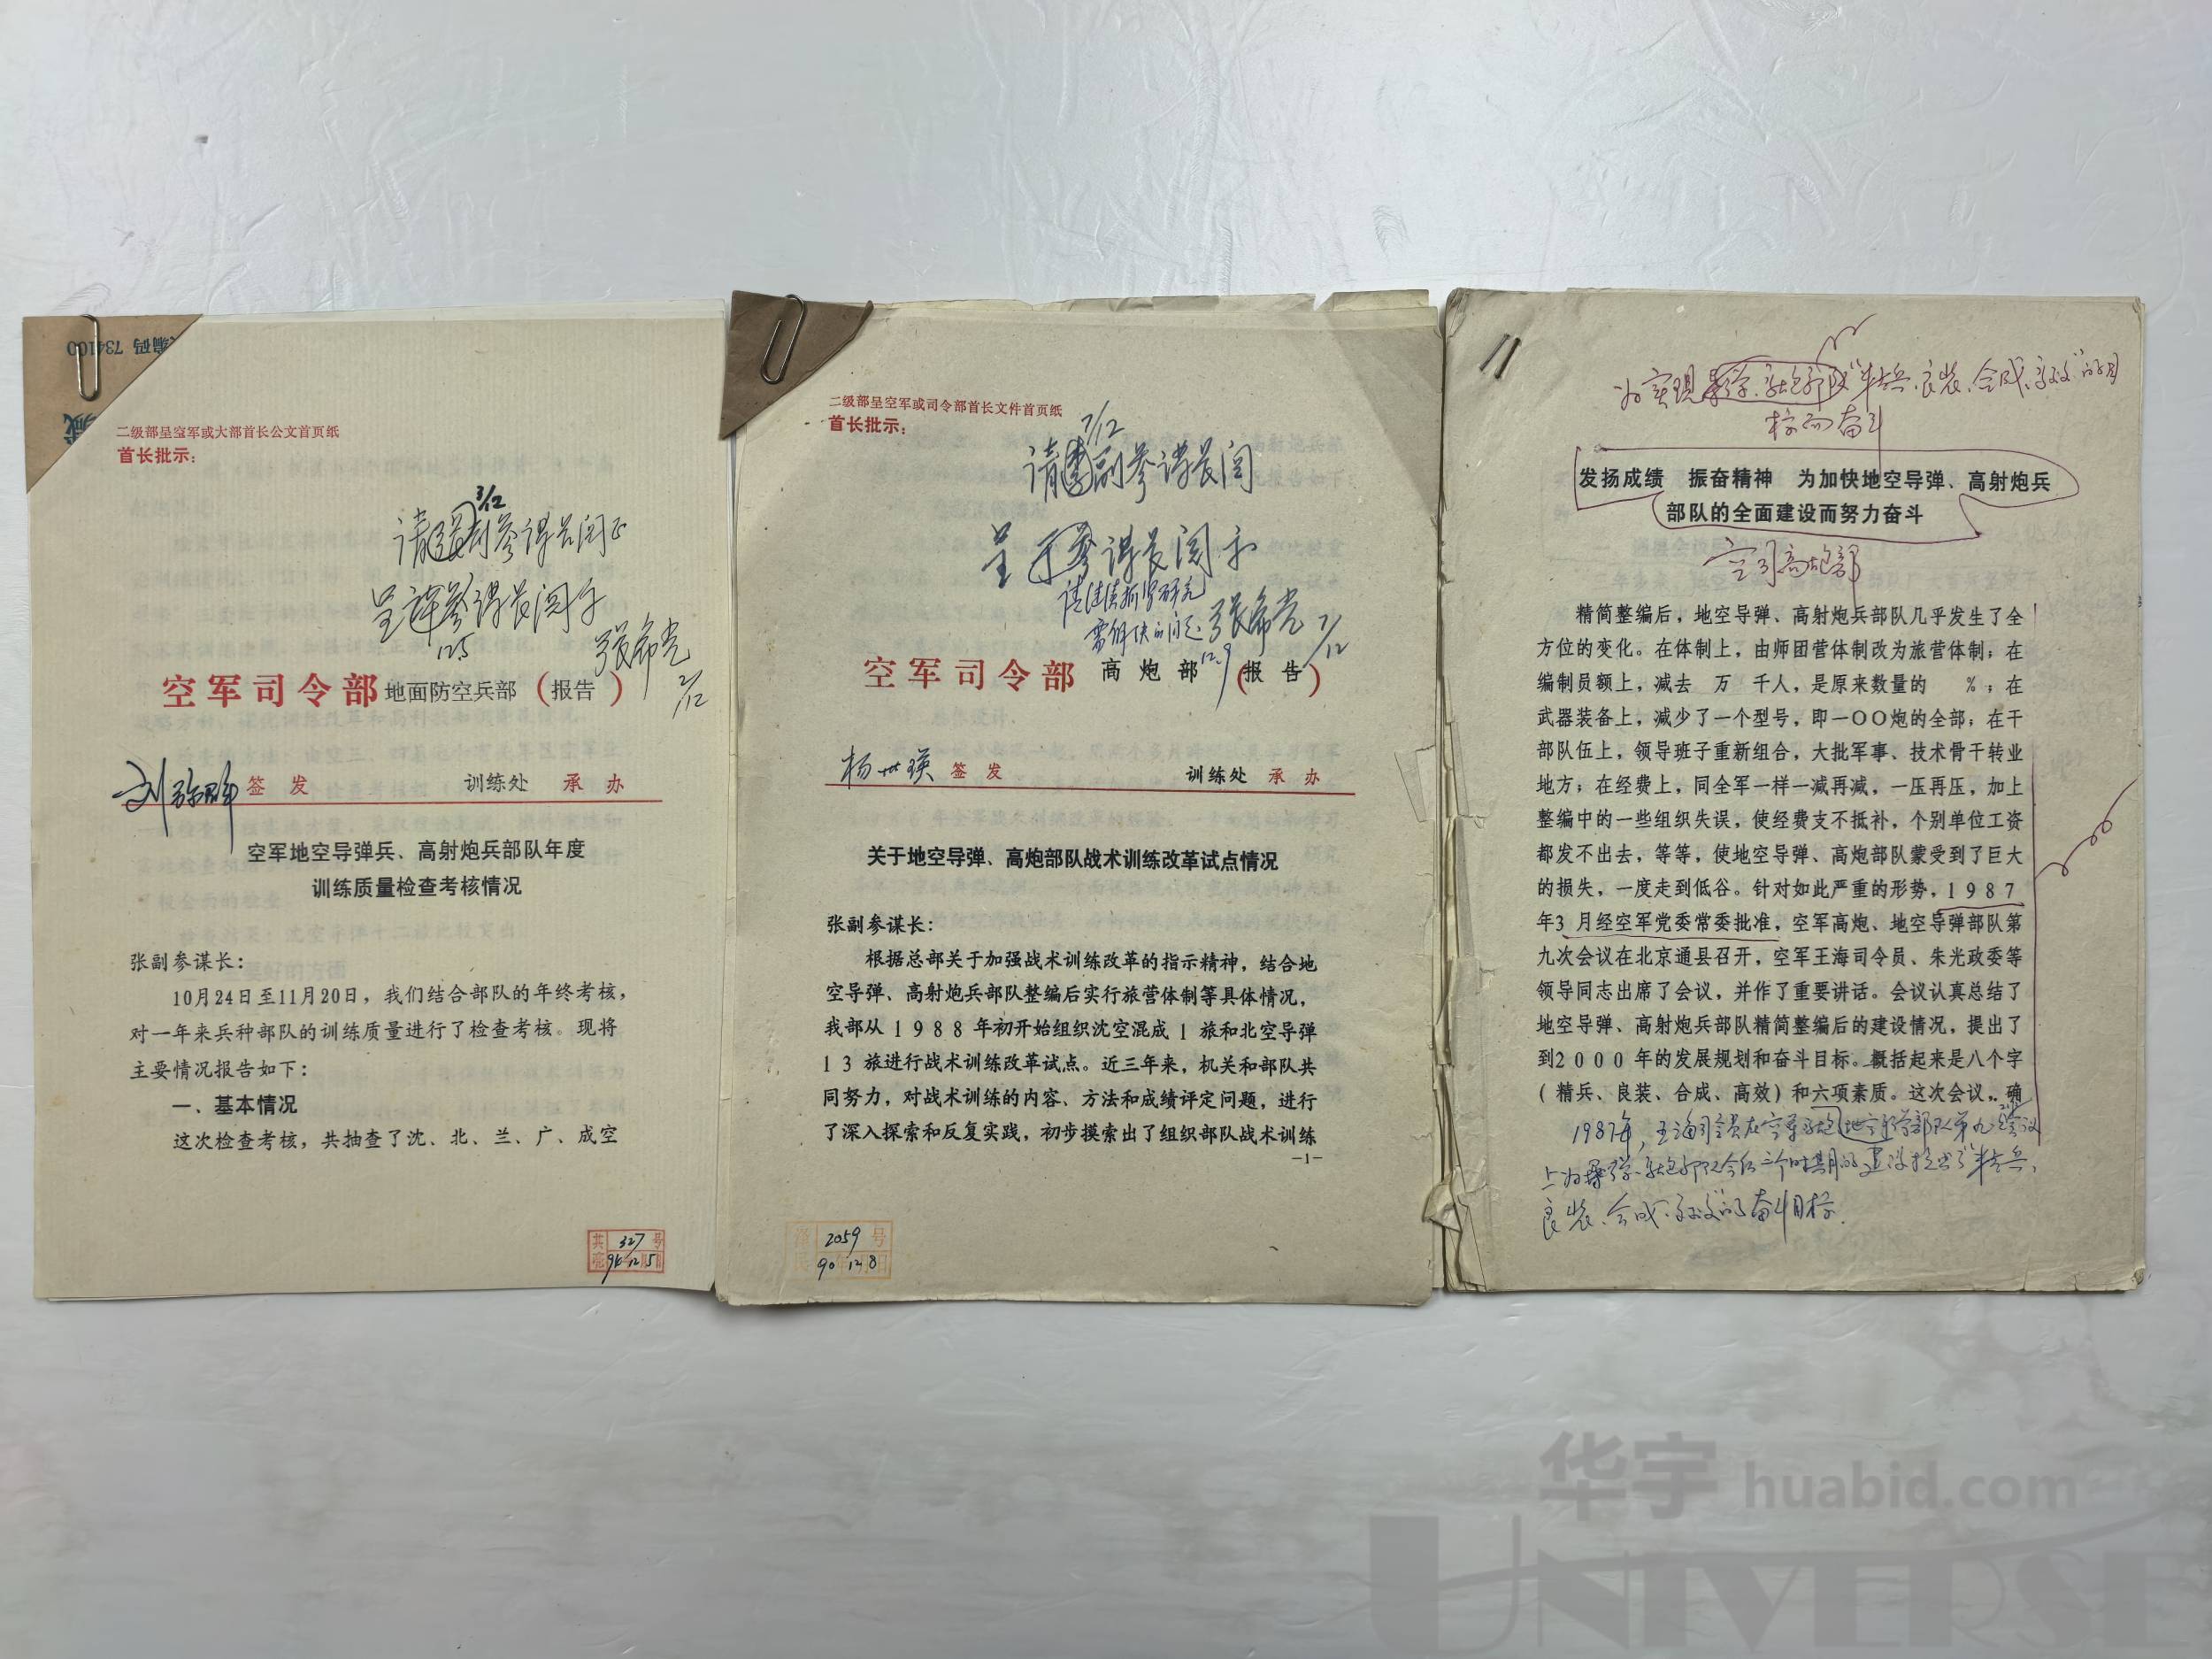 编码 734100
二级部呈空军或大部首长公文首页纸
首长批示:
3/12
请副参谋长阅正
呈许参谋长阅示
12.5
张希光
2/12
空军司令部地面防空兵部(报告)
签发 训练处 承办
空军地空导弹兵、高射炮兵部队年度
训练质量检查考核情况
张副参谋长:
10月24日至11月20日,我们结合部队的年终考核,
对一年来兵种部队的训练质量进行了检查考核。现将
主要情况报告如下:
一、基本情况
这次检查考核,共抽查了沈、北、兰、广、成空
共 327 号
94 12 5
二级部呈空军或司令部首长文件首页纸
首长批示:
7/12
请李副参谋长阅
呈于参谋长阅示
请继续抓紧研究
需解决的问题
12.9
张希光
7/12
空军司令部 高炮部(报告)
杨世瑛 签发 训练处 承办
关于地空导弹、高炮部队战术训练改革试点情况
张副参谋长:
根据总部关于加强战术训练改革的指示精神,结合地
空导弹、高射炮兵部队整编后实行旅营体制等具体情况,
我部从1988年初开始组织沈空混成1旅和北空导弹
13旅进行战术训练改革试点。近三年来,机关和部队共
同努力,对战术训练的内容、方法和成绩评定问题,进行
了深入探索和反复实践,初步摸索出了组织部队战术训练
—1—
2059 号
90 12 8
为实现导弹、高炮部队“精兵、良装、合成、高效”的目
标而奋斗
发扬成绩 振奋精神 为加快地空导弹、高射炮兵
部队的全面建设而努力奋斗
空司高炮部
精简整编后,地空导弹、高射炮兵部队几乎发生了全
方位的变化。在体制上,由师团营体制改为旅营体制;在
编制员额上,减去 万 千人,是原来数量的 %;在
武器装备上,减少了一个型号,即一〇〇炮的全部;在干
部队伍上,领导班子重新组合,大批军事、技术骨干转业
地方;在经费上,同全军一样一减再减,一压再压,加上
整编中的一些组织失误,使经费支不抵补,个别单位工资
都发不出去,等等,使地空导弹、高炮部队蒙受到了巨大
的损失,一度走到低谷。针对如此严重的形势,1987
年3月经空军党委常委批准,空军高炮、地空导弹部队第
九次会议在北京通县召开,空军王海司令员、朱光政委等
领导同志出席了会议,并作了重要讲话。会议认真总结了
地空导弹、高射炮兵部队精简整编后的建设情况,提出了
到2000年的发展规划和奋斗目标。概括起来是八个字
(精兵、良装、合成、高效)和六项素质。这次会议,确
1987年,王海司令员在空军高炮地空导弹部队第九次会议
上为导弹、高炮部队今后一个时期的建设提出了“精兵、
良装、合成、高效”的奋斗目标.
华宇 huabid.com
UNIVERSE